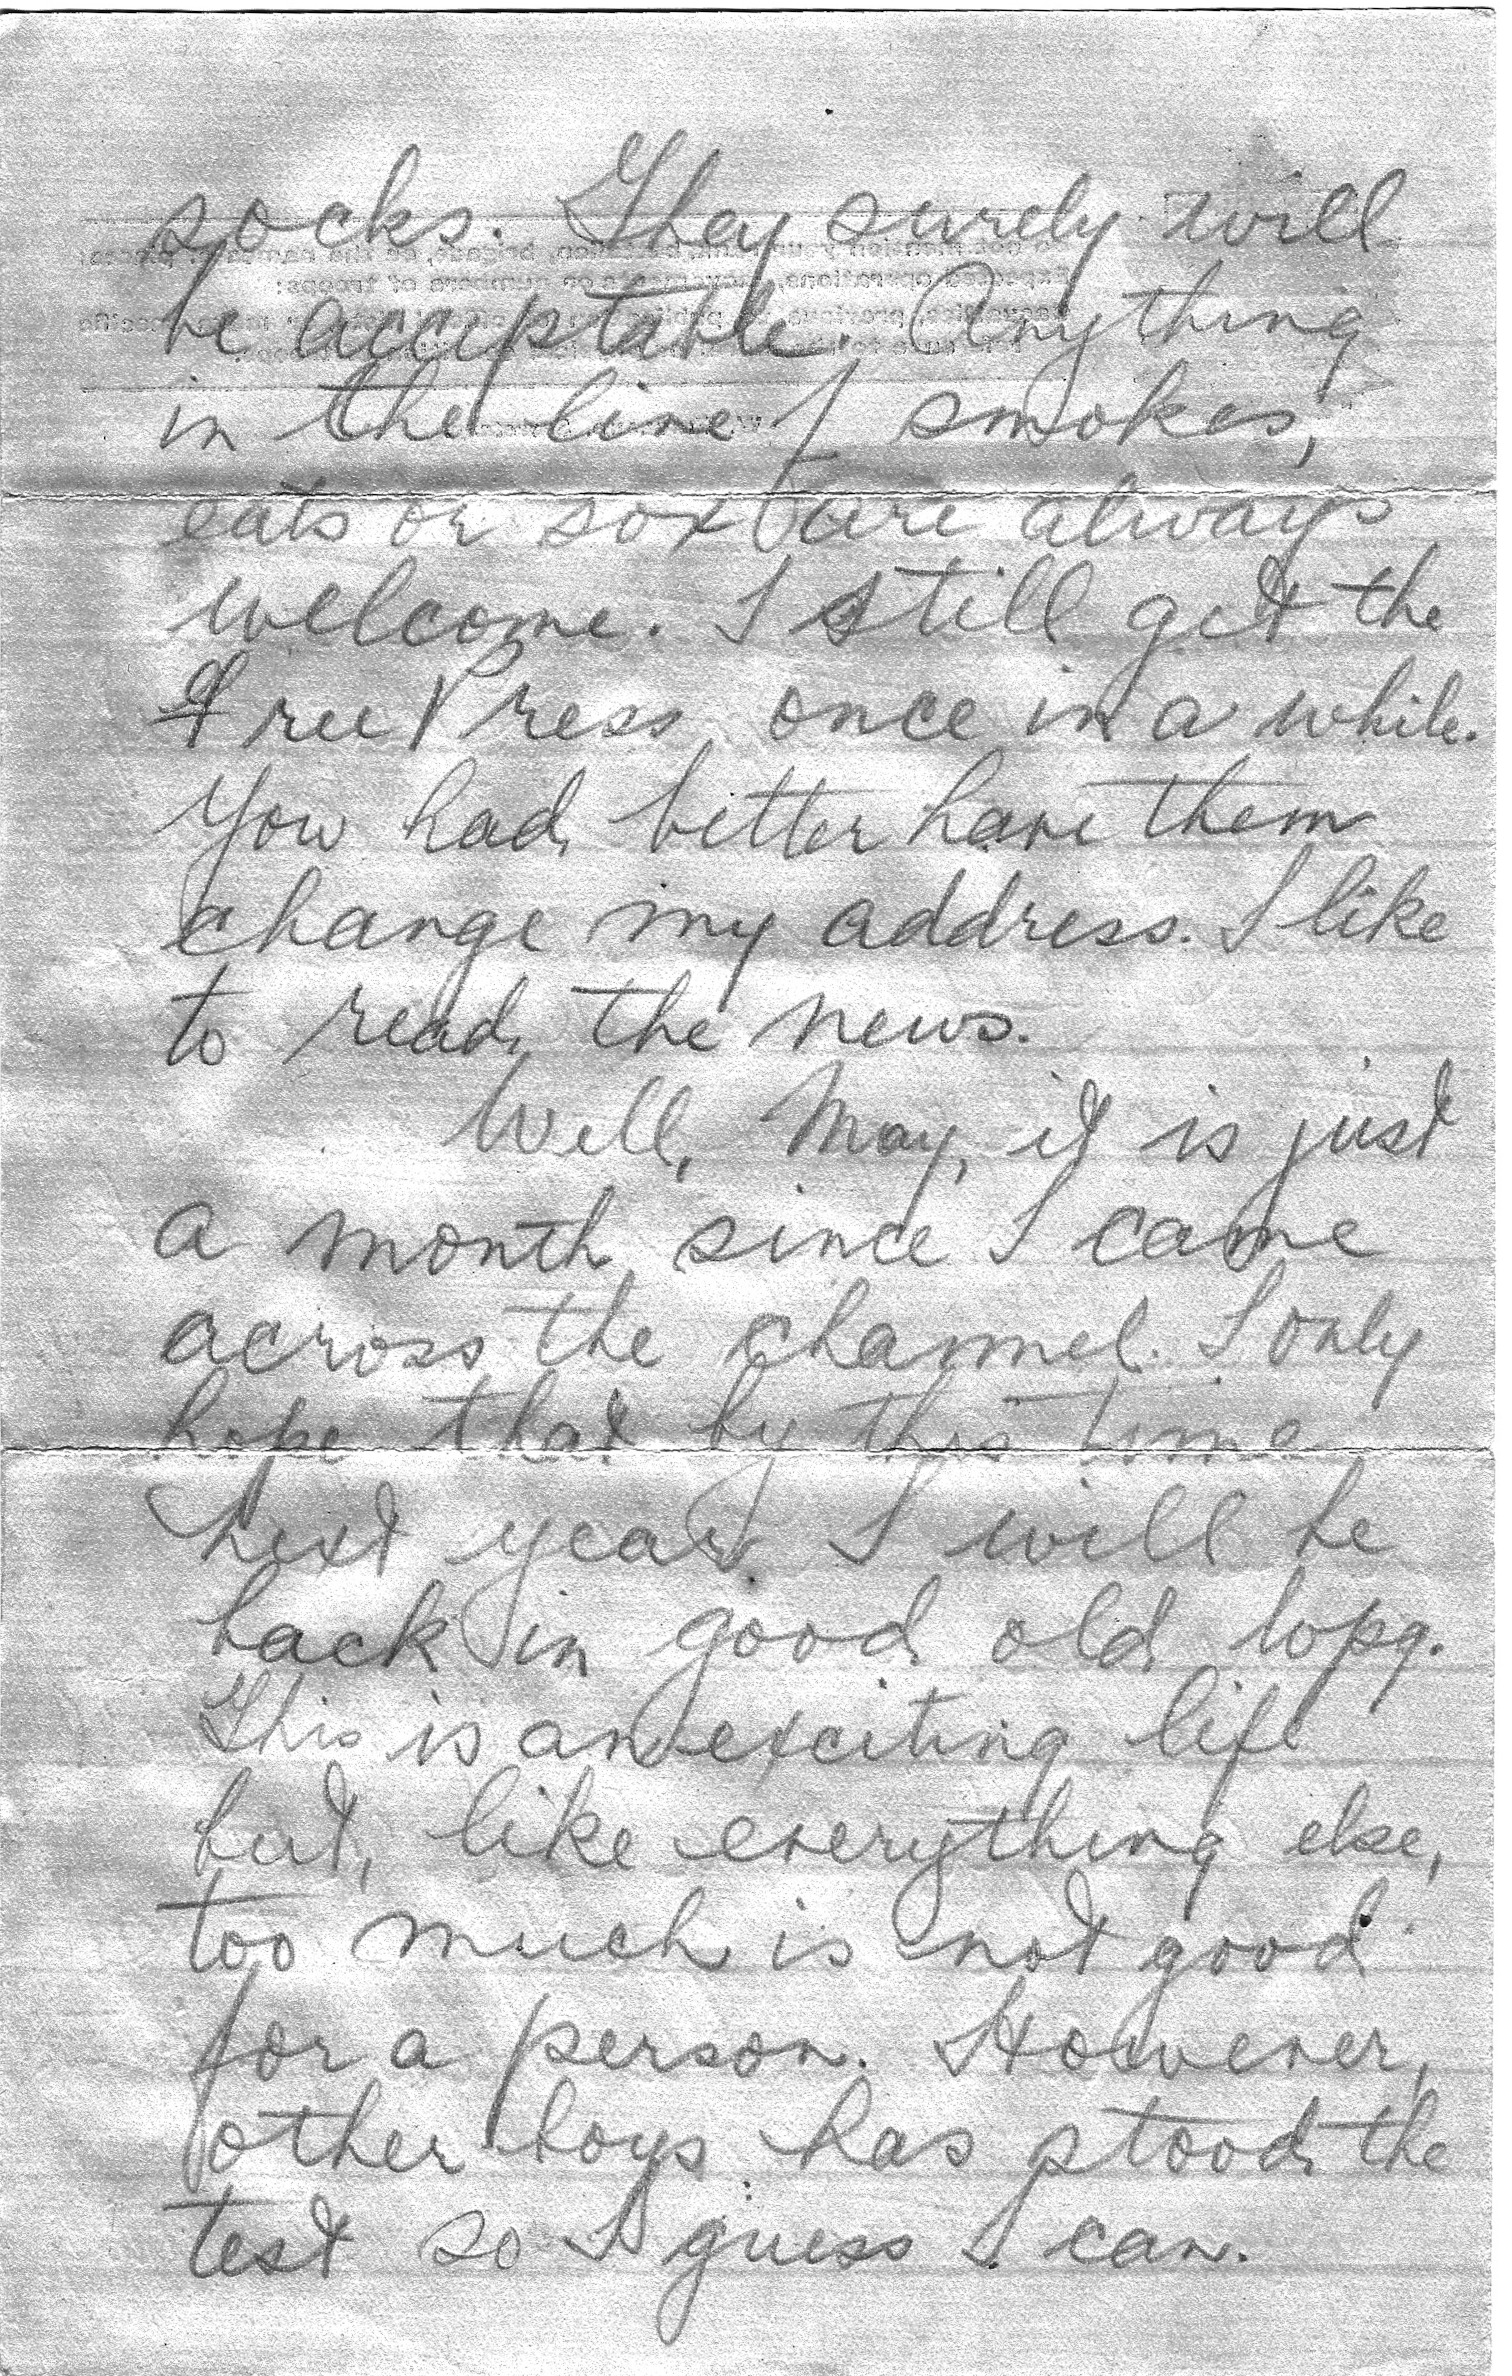 socks. They surely will
be acceptable. Anything
in the line of smokes,
eats or sox are always
welcome. I still get the
Free Press once in a while.
You had better have them
change my address. I like
to read the news.
Well, May, it is just
a month since I came
across the channel. I only
hope that by this time
next year I will be
back in good old Wpg.
This is an exciting life
but, like everything else,
too much is not good
for a person. However,
other boys has stood the
test so I guess I can.